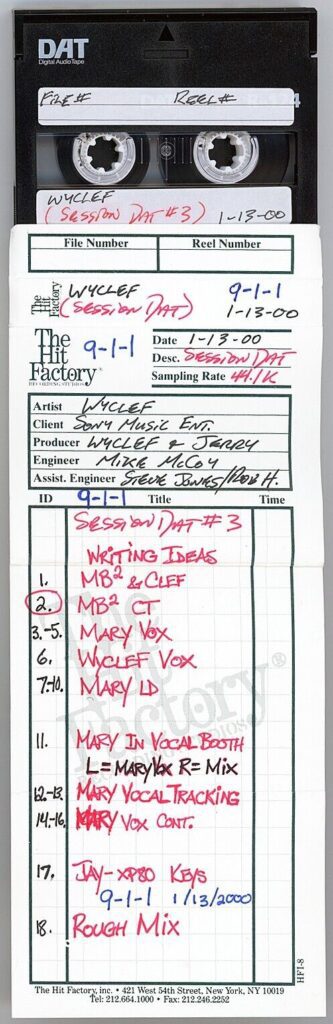 DAT
Digital Audio Tape
FILE# REEL#
WYCLEF
(SESSION DAT #3) 1-13-00
File Number Reel Number
The Hit Factory
WYCLEF 9-1-1
(SESSION DAT) 1-13-00
The
Hit
Factory®
RECORDING STUDIOS
9-1-1
Date 1-13-00
Desc. SESSION DAT
Sampling Rate 44.1K
Artist WYCLEF
Client SONY MUSIC ENT.
Producer WYCLEF & JERRY
Engineer MIKE McCOY
Assist. Engineer STEVE JONES/ROB H.
ID 9-1-1 Title Time
SESSION DAT #3
WRITING IDEAS
1. MB² & CLEF
2. MB² CT
3.-5. MARY VOX
6. WYCLEF VOX
7-10. MARY LD
11. MARY IN VOCAL BOOTH
L=MARY VOX R=MIX
12-13. MARY VOCAL TRACKING
14.-16. MARY VOX CONT.
17. JAY-XP80 KEYS
9-1-1 1/13/2000
18. ROUGH MIX
The Hit Factory®
HFI-8
The Hit Factory, inc. • 421 West 54th Street, New York, NY 10019
Tel: 212.664.1000 • Fax: 212.246.2252